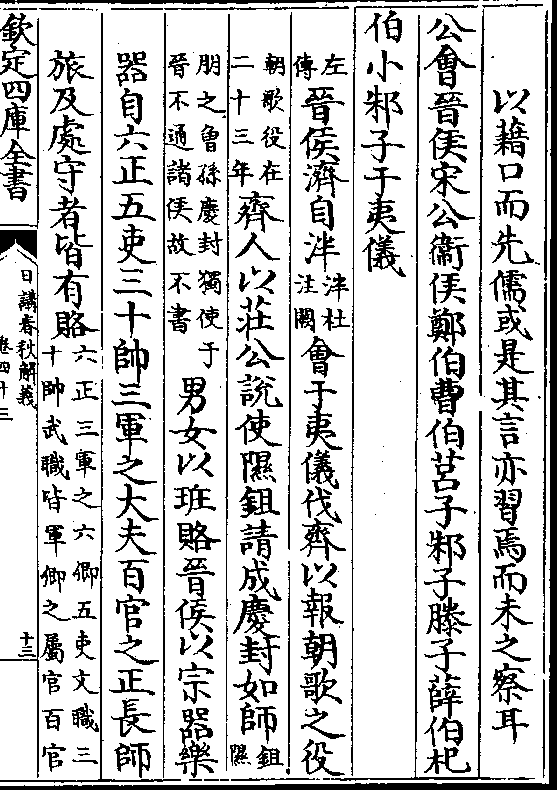 以藉口而先儒或是其言亦習焉而未之察耳
公會晉侯宋公衛侯鄭伯曹伯莒子邾子滕子薛伯杞
伯小邾子于夷儀
左傳晉侯濟自泮泮杜注闕會于夷儀伐齊以報朝歌之役
朝歌役在二十三年齊人以莊公說使隰鉏請成慶封如師鉏隰
朋之曾孫慶封獨使于晉不通諸侯故不書男女以班賂晉侯以宗器樂
器自六正五吏三十帥三軍之大夫百官之正長師
旅及處守者皆有賂六正三軍之六卿五吏文職三十帥武職皆軍卿之屬官百官
欽定四庫全書
日講春秋解義
卷四十三
十三